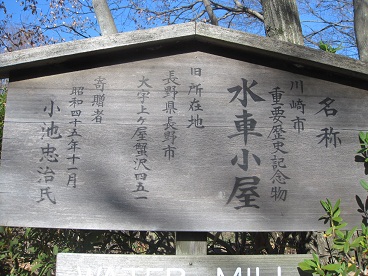 名称
川崎市
重要歴史記念物
水車小屋
旧所在地
長野県長野市
大字上ヶ屋蟹沢四五一
寄贈者
昭和四十五年十一月
小池忠治氏
WATER MILL